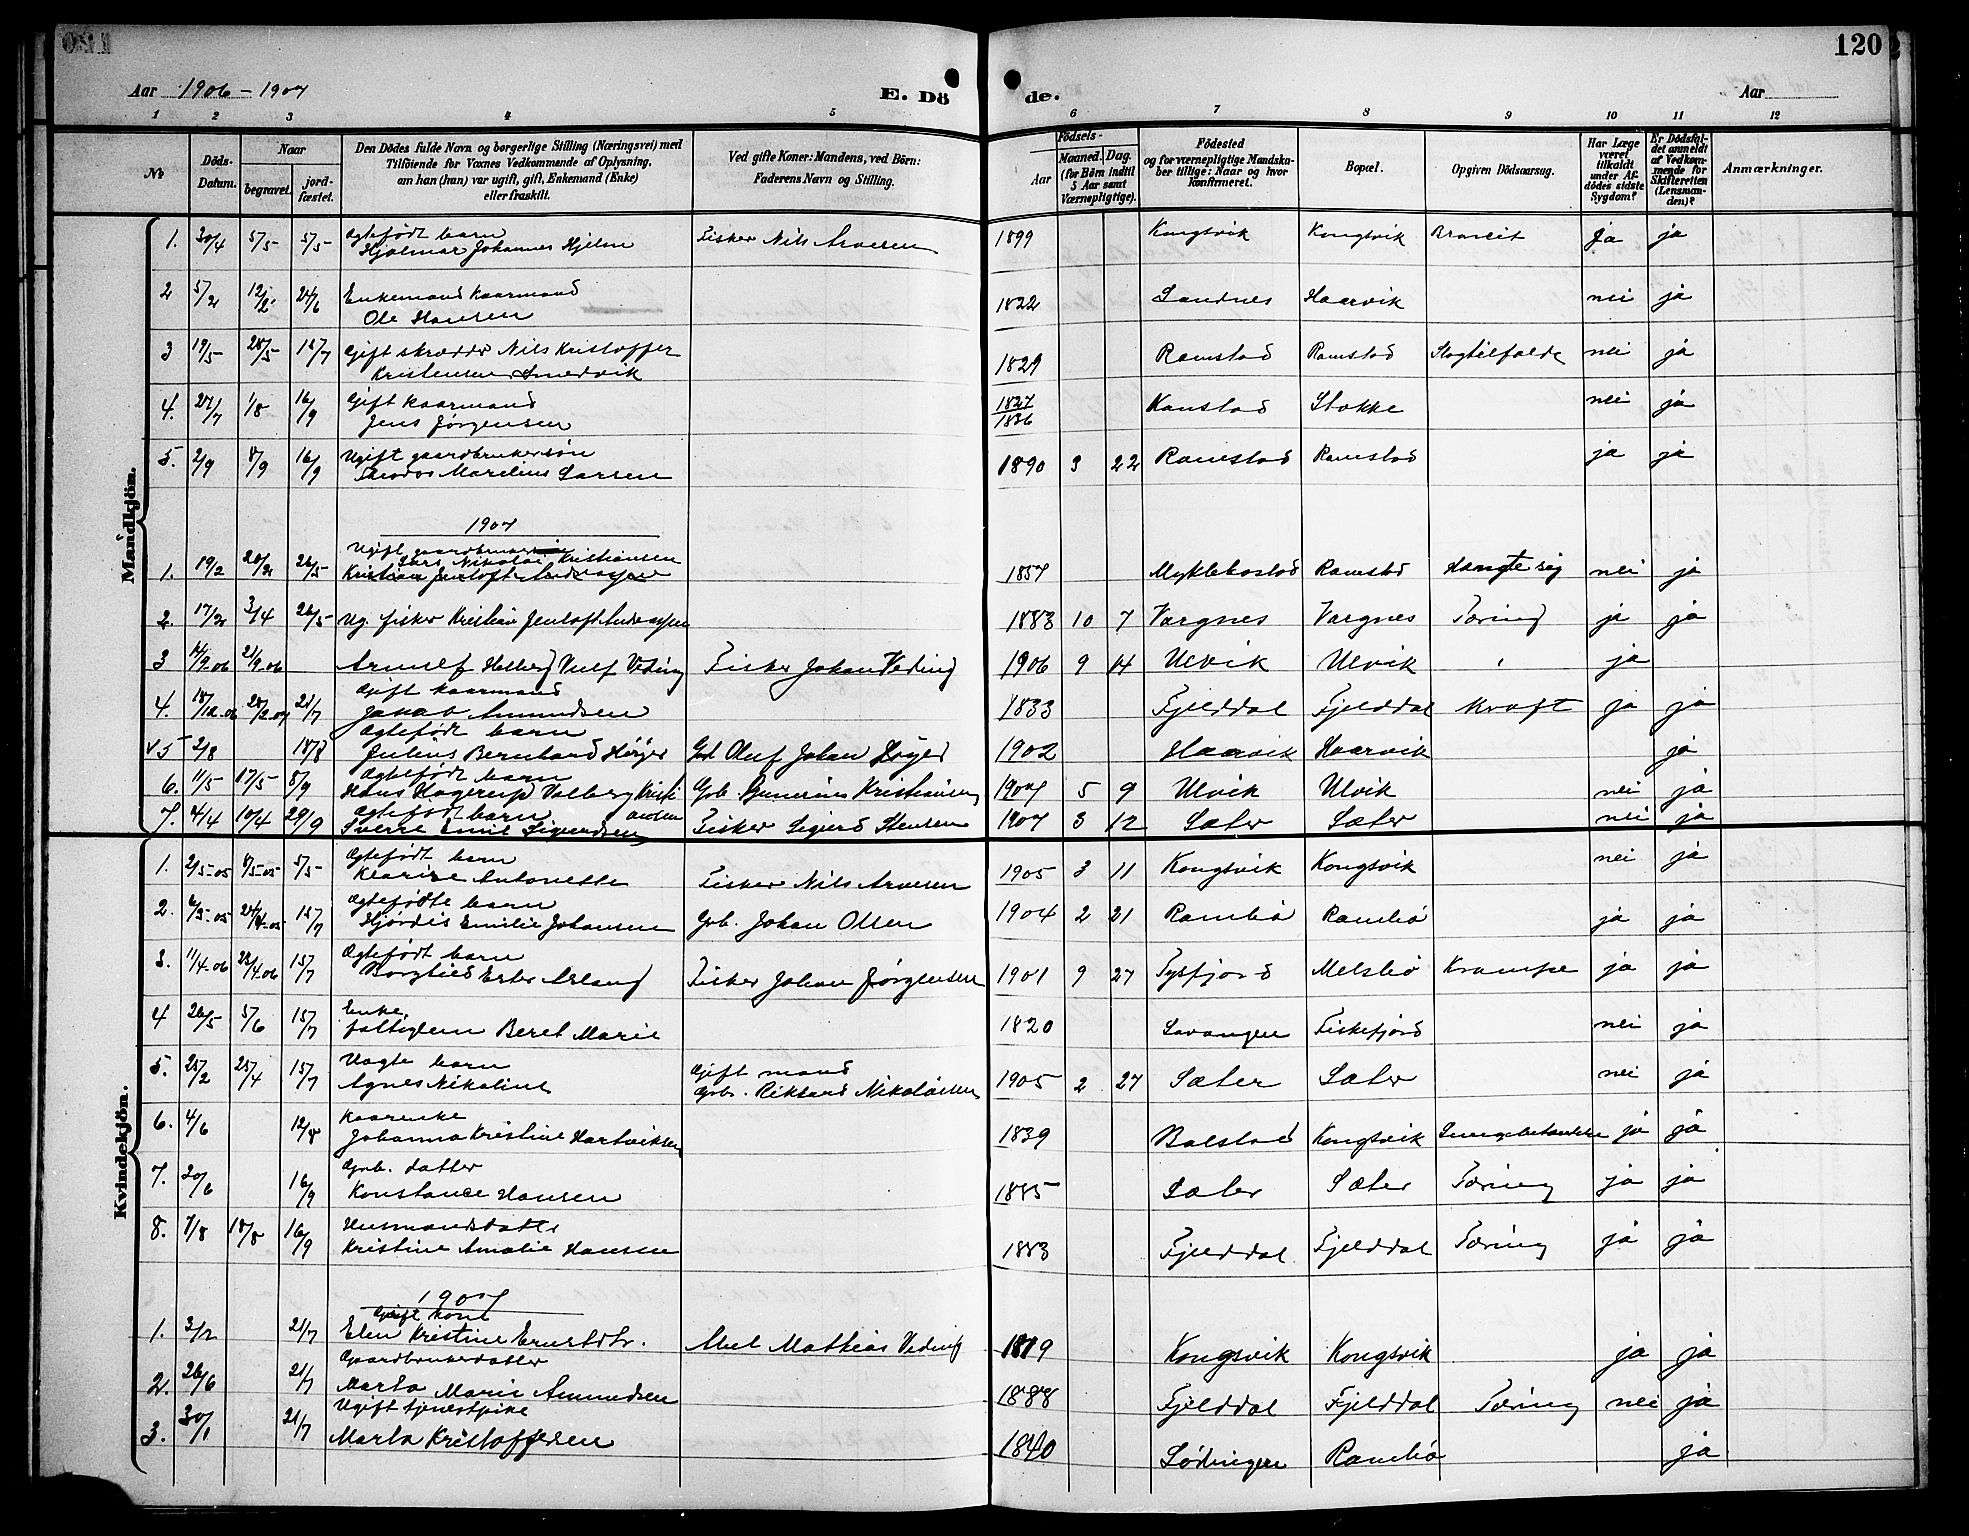 120
Aar 1906 - 1907
E. Dö de.
Aar
1 2 3 4 5 6 7 8 9 10 11 12
No
Döds-Datum.
Naar
begravet.
jord-fæstet.
Den Dödes fulde Navn og borgerlige Stilling (Næringsvei) med
Tilföiende for Voxnes Vedkommende af Oplysning,
om han (hun) var ugift, gift, Enkemand (Enke)
eller fraskilt.
Ved gifte Koner: Mandens, ved Börn:
Faderens Navn og Stilling.
Födsels-
Aar
Maaned. Dag.
(for Börn indtil
5 Aar samt
Værnepligtige).
Födested
og for værnepligtige Mandska-
ber tillige: Naar og hvor
konfirmeret.
Bopæl.
Opgiven Dödsaarsag.
Har Læge
været
tilkaldt
under Af-
dödes sidste
Sygdom?
Er Dödsfal-
det anmeldt
af Vedkom-
mende for
Skifteretten
(Lensman-
den)?
Anmærkninger.
Mandkjön.
1. 30/4 5/5 5/5 Ægtefødt barn
Hjalmar Johannes Hjelm Fisker Nils Arvesen 1899 Kongsvik Kongsvik ja ja
2 5/2 12/2 24/6 Enkemand kaarmand
Ole Hansen 1822 Sandnes Haarvik nei ja
3 19/5 28/5 15/7 Gift skrædder Nils Kristoffer
Kristensen Smedvik 1829 Ramstad Ramstad Slagtilfælde nei ja
4. 27/7 1/8 16/9 Gift kaarmand
Jens Jørgensen 1827
1836 Kanstad Stokke nei ja
5. 2/9 8/9 16/9 Ugift gaardbrukersøn
Teodor Marelius Larsen 1890 3 22 Ramstad Ramstad ja ja
1907
Ugift gaardbruker
Lars Nikolai Kristiansen
1. 19/2 26/5 Kristian Jentoft Andreassen 1857 Myklebostad Ramstad Hængte sig nei ja
2. 3/4 26/5 Ug. fisker Kristian Jentoft Andreassen 1883 10 7 Vargnes Vargnes Tæring ja ja
3 21/9.06 Arnulf Holberg Veding Fisker Johan Veding 1906 9 14 Ulvik Ulvik ja
4. 18/12.06 21/7 Gift kaarmand
Jakob Amundsen 1833 Fjelddal Fjelddal Kræft ja ja
v 5 2/8 18/8 Ægtefødt barn
Julius Bernhard Høyer Oluf Johan Høyer 1902 Haarvik Haarvik ja
6. 11/5 17/5 8/9 Ægtefødt barn
Hans Hagerup Valberg Kristi
ansen Grb. Gunerius Kristiansen 1907 5 9 Ulvik Ulvik nei ja
7. 4/4 10/4 29/9 Ægtefødt barn
Sverre Emil Sigurdsen Fisker Sigurd Stensen 1907 3 12 Sæter Sæter nei ja
Kvindekjön.
1. 2/5-05 8/5-05 5/5 Ægtefødt barn
Antonette Fisker Nils Arvesen 1905 3 11 Kongsvik Kongsvik nei ja
2. 15/7 Ægtefødte barn
Hjørdis Emilie Johansen Grb. Johan Olsen 1904 2 21 Rambø Rambø ja ja
3. 11/4.06 15/7 Ægtefødt barn
Fisker Johan Jørgensen 1901 9 27 Tysfjord Melsbø Krampe ja ja
4 26/5 5/6 15/7 Enke,
fattiglem Beret Marie 1820 Lavangen Fiskefjord nei ja
5. 25/2 25/4 15/7 Uægte barn
Agnes Nikoline Gift mand
Grbr. Rikhard Nikolaisen 1905 2 27 Sæter Sæter nei ja
6. 4/6 12/8 Kaarenke
Johanna Kristine Hartviksen 1839 Balstad Kongsvik Lungebetændelse ja ja
7. 20/6 16/9 Grb. datter
Konstance Hansen 1885 Sæter Sæter Tæring ja ja
8. 7/8 18/8 16/9 Husmandsdatter
Kristine Amalie Hansen 1883 Fjelddal Fjelddal Tæring ja ja
1907
Gift kone
1. 3/2 21/7 Elen Kristine Ernstdtr. Abel Mathias Veding 1819 Kongsvik Kongsvik ja ja
Gaardbrukerdatter
2. 26/6 21/7 Marta Marie Amundsen 1888 Fjelddal Fjelddal Tæring nei ja
Ugift tjenestpike
3. 30/1 21/7 Marta Kristoffersen 1840 Lødingen Rambø ja